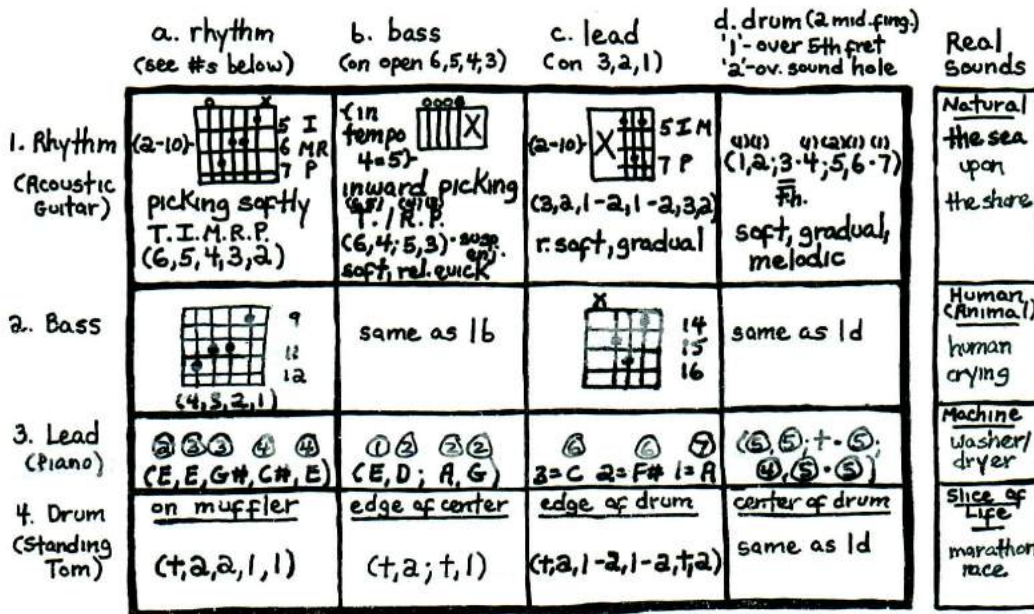 a. rhythm
(see #s below)
b. bass
(on open 6,5,4,3)
c. lead
(on 3,2,1)
d. drum (2 mid. fing.)
'1'- over 5th fret
'2'-ov. sound hole
Real
Sounds
1. Rhythm
(Acoustic
Guitar)
(2-10)
5 I
6 MR
7 P
picking softly
T. I. M. R. P.
(6,5,4,3,2)
(in
tempo
4=5)
X
inward picking
T. / R. P.
(6,4; 5,3)
soft, rel. quick
(2-10)
X
5 I M
7 P
(3,2,1-2,1-2,3,2)
r. soft, gradual
(1,2;3·4;5,6·7)
soft, gradual,
melodic
Natural
the sea
upon
the shore
2. Bass
9
11
12
(4,3,2,1)
same as 1b
X
14
15
16
same as 1d
Human,
(Animal)
human
crying
3. Lead
(Piano)
(E, E, G#, C#, E)
(E, D; A, G)
3=C 2=F# 1=A
(5,5;t·5;
4,5·5)
Machine
washer/
dryer
4. Drum
(Standing
Tom)
on muffler
(t,2,2,1,1)
edge of center
(t,2;t,1)
edge of drum
(t,2,1-2,1-2,t,2)
center of drum
same as 1d
Slice of
Life
marathon
race